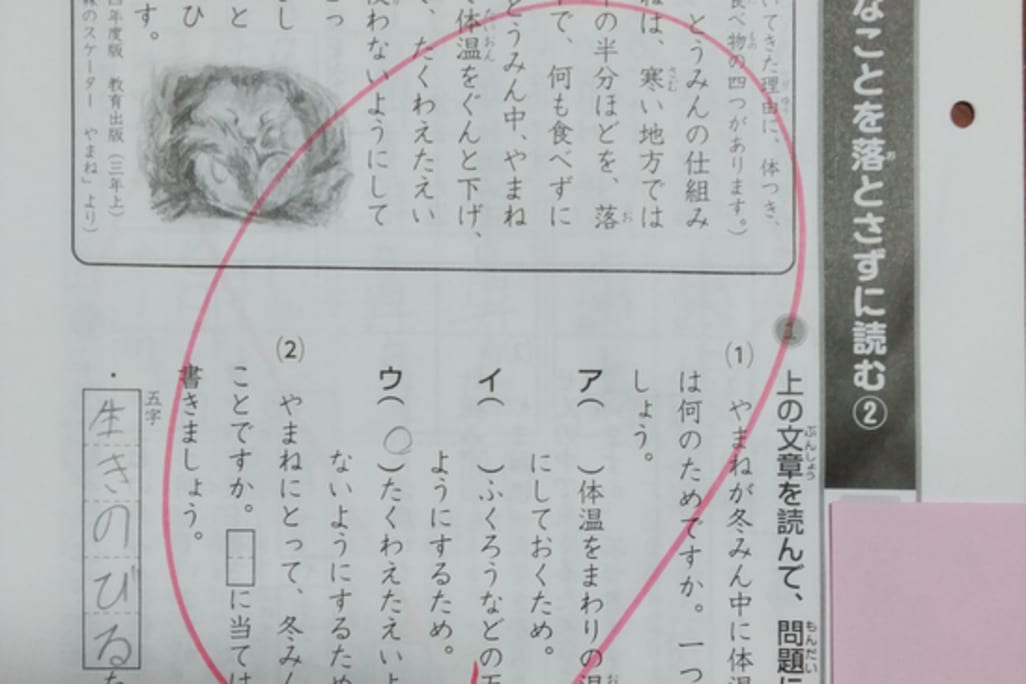 なことを落とさずに読む②
いてきた理由に、体つき、
食べ物の四つがあります。）
とうみんの仕組み
ねは、寒い地方では
の半分ほどを、落
で、何も食べずに
とうみん中、やまね
体温をぐんと下げ、
、たくわえたえい
使わないようにして
っ
し
と
ひ
す。
四年度版 教育出版（三年上）
のスケーター やまね」より）
1 上の文章を読んで、問題に
(1) やまねが冬みん中に体温
は何のためですか。一つ
しょう。
ア（ ）体温をまわりの温
にしておくため。
イ（ ）ふくろうなどの
ようにするため。
ウ（○）たくわえたえいよ
ないようにするため
(2) やまねにとって、冬みん
ことですか。□に当ては
書きましょう。
五字
・生きのびるた